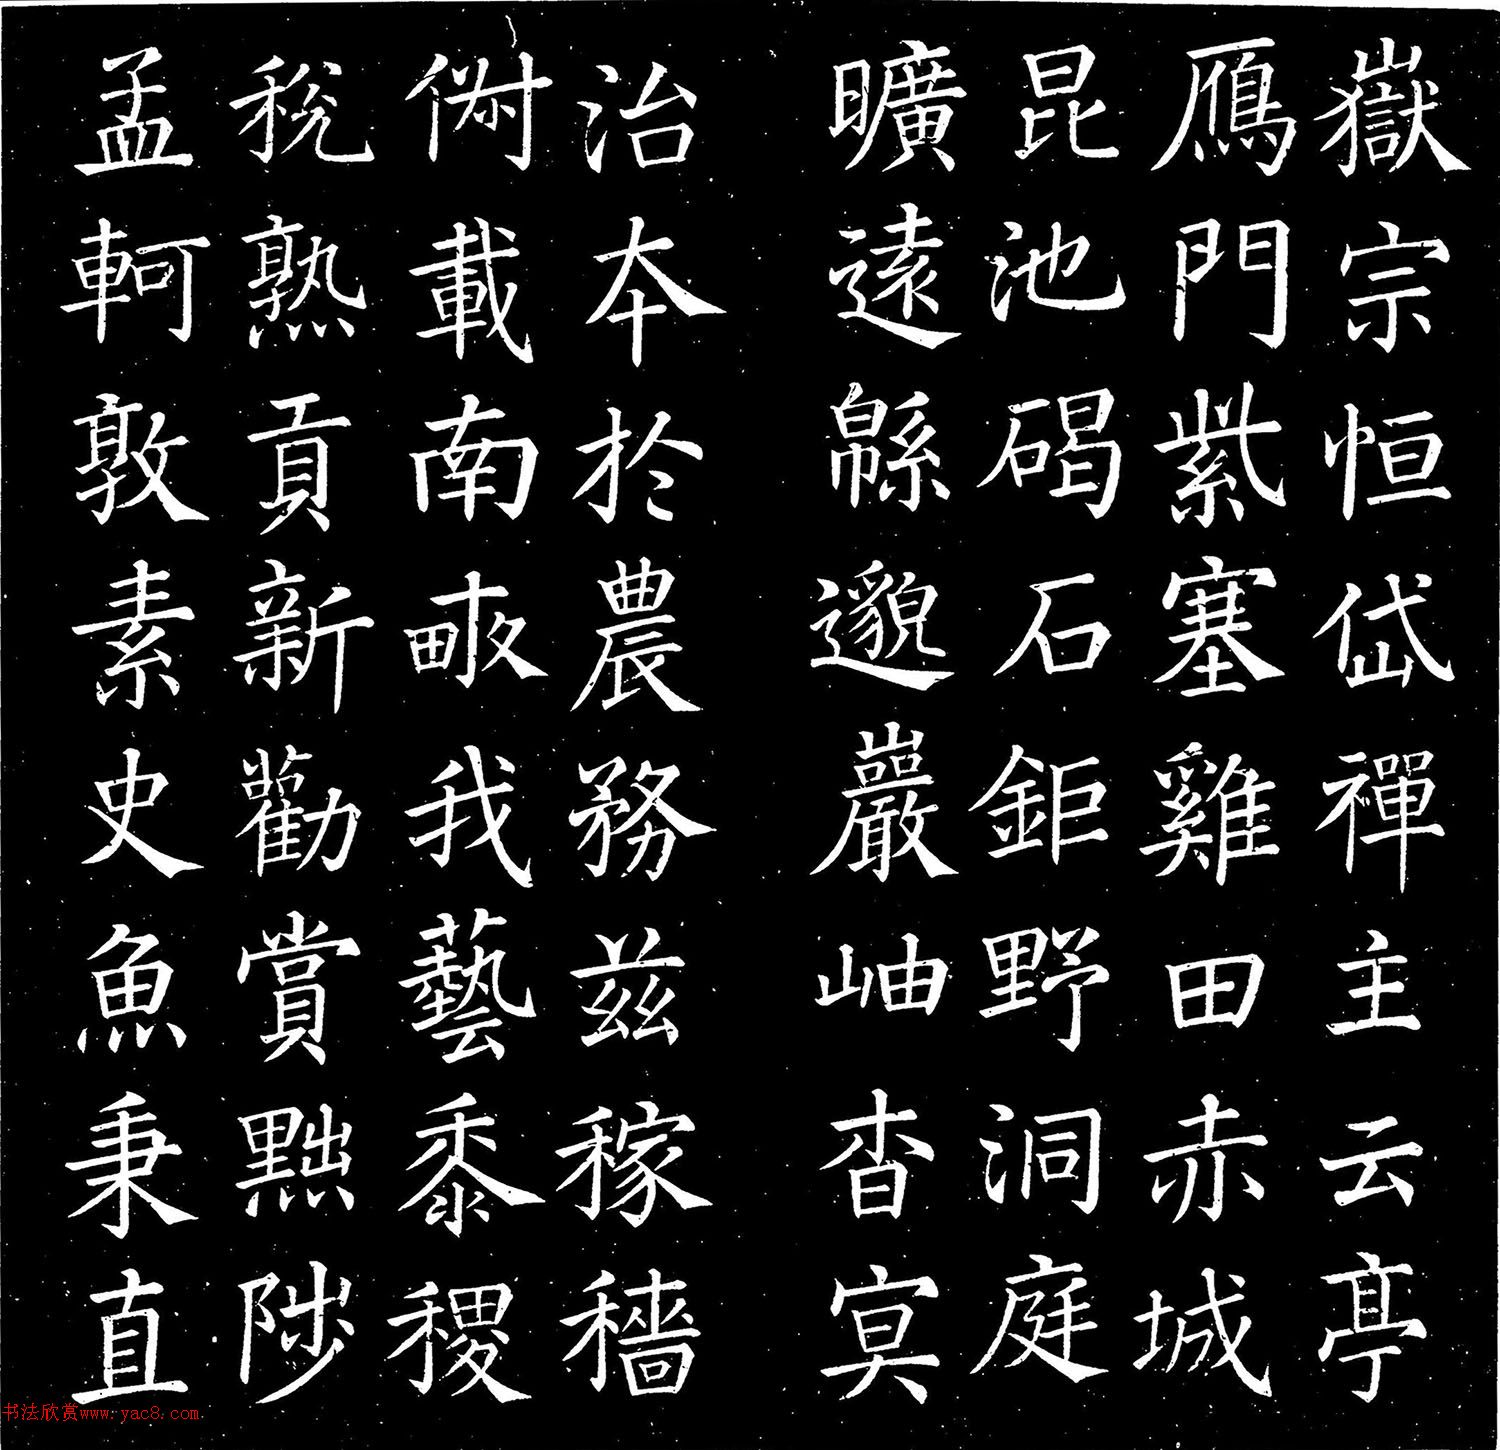 嶽宗恒岱禪主云亭
鴈門紫塞雞田赤城
昆池碣石鉅野洞庭
曠遠緜邈巖岫杳冥
治本於農務兹稼穡
俶載南畝我藝黍稷
稅熟貢新勸賞黜陟
孟軻敦素史魚秉直
书法欣赏www.yac8.com